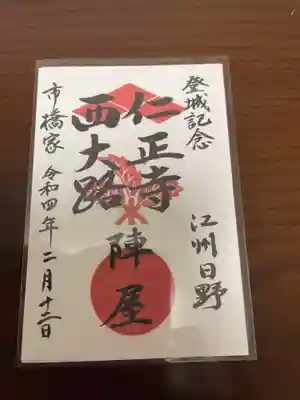 登城記念
江州日野
仁正寺
西大路
陣屋
市橋家
令和四年二月十二日